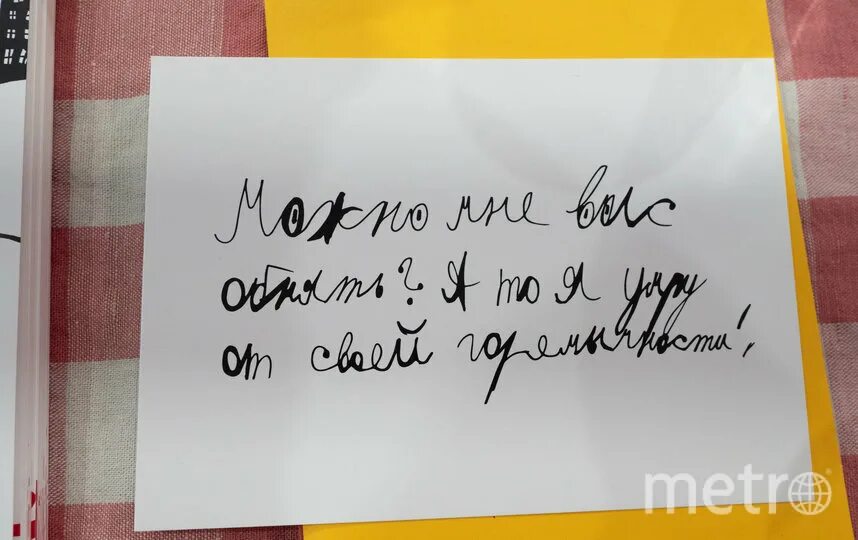 Можно мне вас
обнять? А то я умру
от своей горемычности!
metro